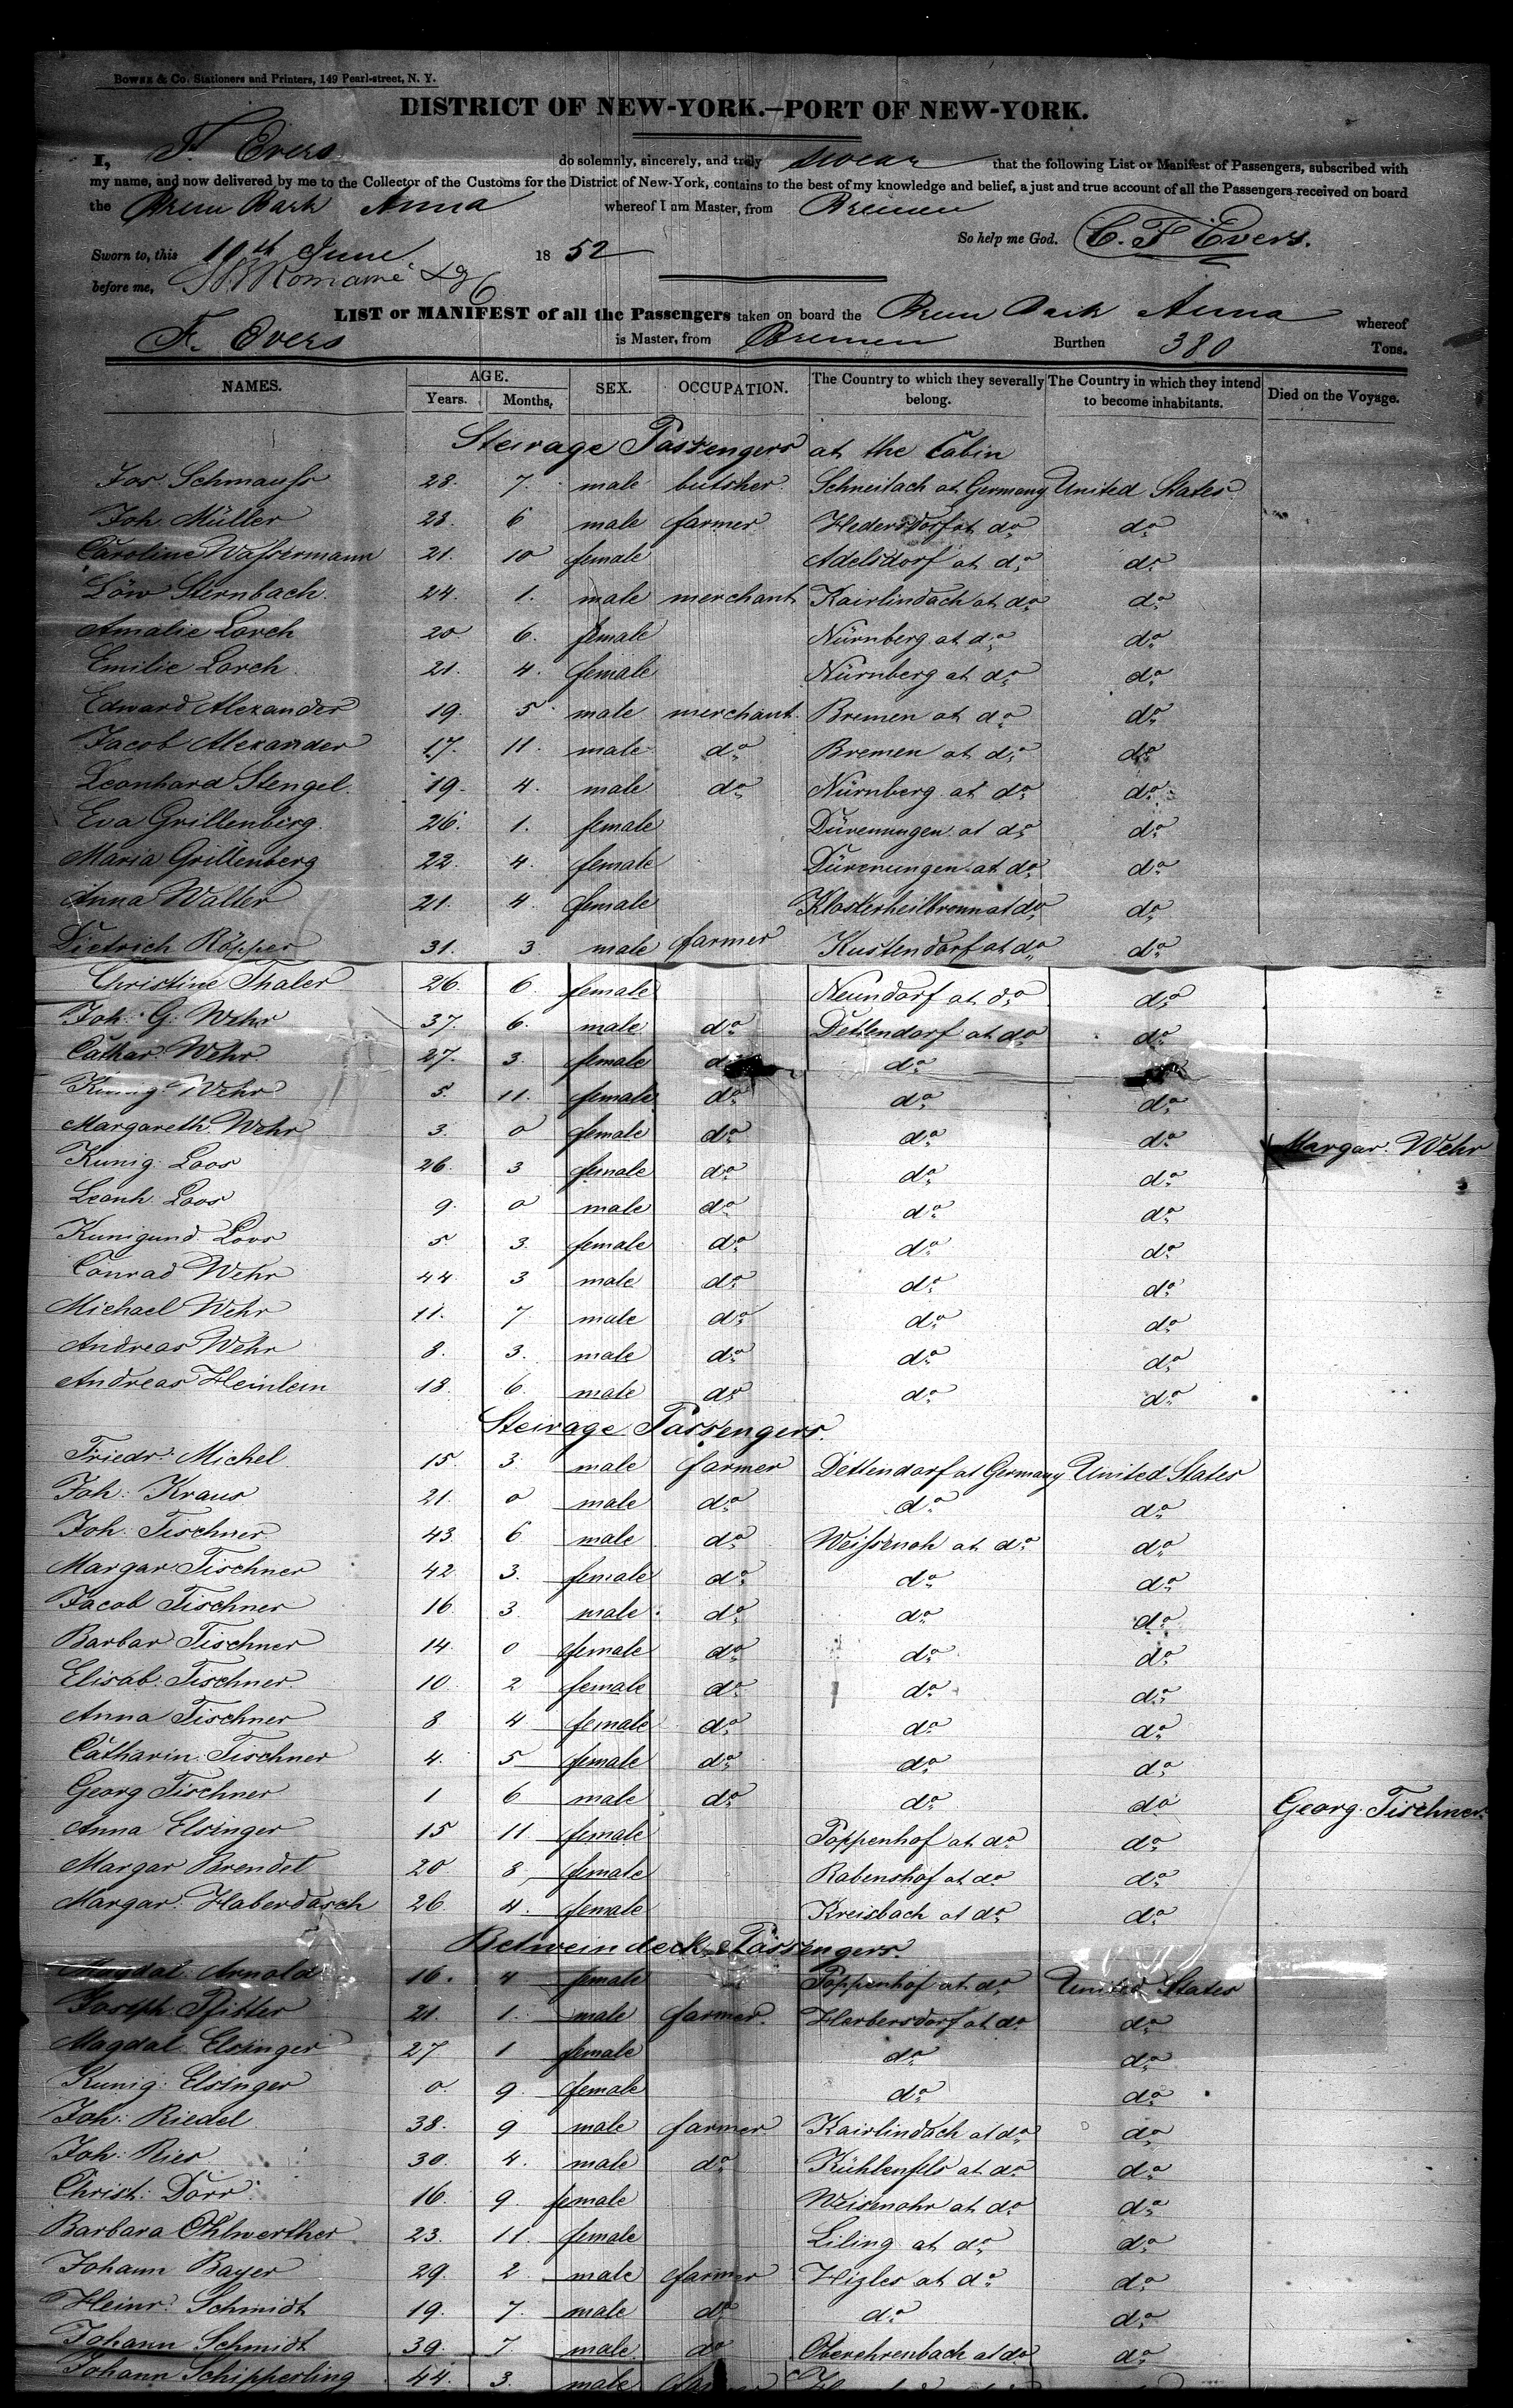 Bowne & Co. Stationers and Printers, 149 Pearl-street, N. Y.
DISTRICT OF NEW-YORK.—PORT OF NEW-YORK.
I, F. Evers do solemnly, sincerely, and truly swear that the following List or Manifest of Passengers, subscribed with
my name, and now delivered by me to the Collector of the Customs for the District of New-York, contains to the best of my knowledge and belief, a just and true account of all the Passengers received on board
the Brem Bark Anna whereof I am Master, from Bremen
So help me God. C. F. Evers.
Sworn to, this 10th June 1852
before me,
LIST or MANIFEST of all the Passengers taken on board the Brem Bark Anna whereof
F. Evers is Master, from Bremen Burthen 380 Tons.
NAMES. AGE. Years. Months, SEX. OCCUPATION. The Country to which they severally belong. The Country in which they intend to become inhabitants. Died on the Voyage.
Steirage Passengers at the Cabin
Jos. Schmauss 28. 7. male butsher. Schneitach at Germany United States
Joh. Müller 23. 6 male farmer Hedersdorf at do do
Caroline Wassermann 21. 10 female Adelsdorf at do do
Löw Sternbach. 24. 1. male merchant Kairlindach at do do
Amalie Lorch 20 6. female Nürnberg at do do
Emilie Lorch 21. 4. female Nürnberg at do do
Edward Alexander 19. 5 male merchant. Bremen at do do
Jacob Alexander 17. 11. male do Bremen at do do
Leonhard Stengel. 19. 4. male do Nürnberg at do do
Eva Grillenberg. 26. 1. female Dürenungen at do do
Maria Grillenberg 22. 4. female Dürenungen at do do
Anna Walter 21. 4. female Klosterheilbronn at do do
Dietrich Röpper 31. 3 male farmer Kustendorf at do do
Christine Thaler 26. 6. female Neundorf at do do
Joh. G. Wehr 37. 6. male do Dettendorf at do do
Cathar. Wehr 27. 3. female do do do
Kunig. Wehr 5. 11. female do do do
Margareth. Wehr 3. 0 female do do do Margar. Wehr
Kunig: Loos 26. 3 female do do do
Leonh. Loos 9. 0 male do do do
Kunigund. Loos 5. 3. female do do do
Conrad Wehr 44 3 male do do do
Michael Wehr 11. 7 male do do do
Andreas Wehr 8. 3. male do do do
Andreas Heinlein 18. 6 male do do do
Steirage Passengers.
Friedr. Michel 15. 3. male farmer Dettendorf at Germany United States
Joh: Kraus 21. 0 male do do do
Joh. Tischner 43. 6 male do Weissenoh at do do
Margar Tischner 42. 3. female do do do
Jacob Tischner 16. 3 male do do do
Barbar Tischner 14. 0 female do do do
Elisab. Tischner. 10. 2 female do do do
Anna Tischner 8 4 female do do do
Catharin. Tischner 4. 5 female do do do
Georg Tischner 1 6 male do do do Georg. Tischner.
Anna Elsinger 15 11 female Poppenhof at do do
Margar Brendel 20 8 female Rabenshof at do do
Margar. Haberdasch 26 4. female Kreisbach at do do
Betweindeck Passengers.
Magdal. Arnold 16. 4 female Poppenhof at do United States
Joseph Pfister 21. 1. male farmer. Harbersdorf at do do
Magdal. Elsinger 27 1 female do do
Kunig: Elsinger 0. 9. female do do
Joh: Riedel 38. 9 male farmer Kairlindach at do do
Joh: Ries 30. 4. male do Kühlenfels at do do
Christ: Dorr. 16. 9. female Weisenohr at do do
Barbara Ohlwerther 23. 11. female Liling at do do
Johann Bayer 29. 2 male farmer Higles at do do
Heinr. Schmidt 19. 7. male do do do
Johann Schmidt 39. 7. male. do Oberehrenbach at do do
Johann Schipperling 44. 3. male farmer